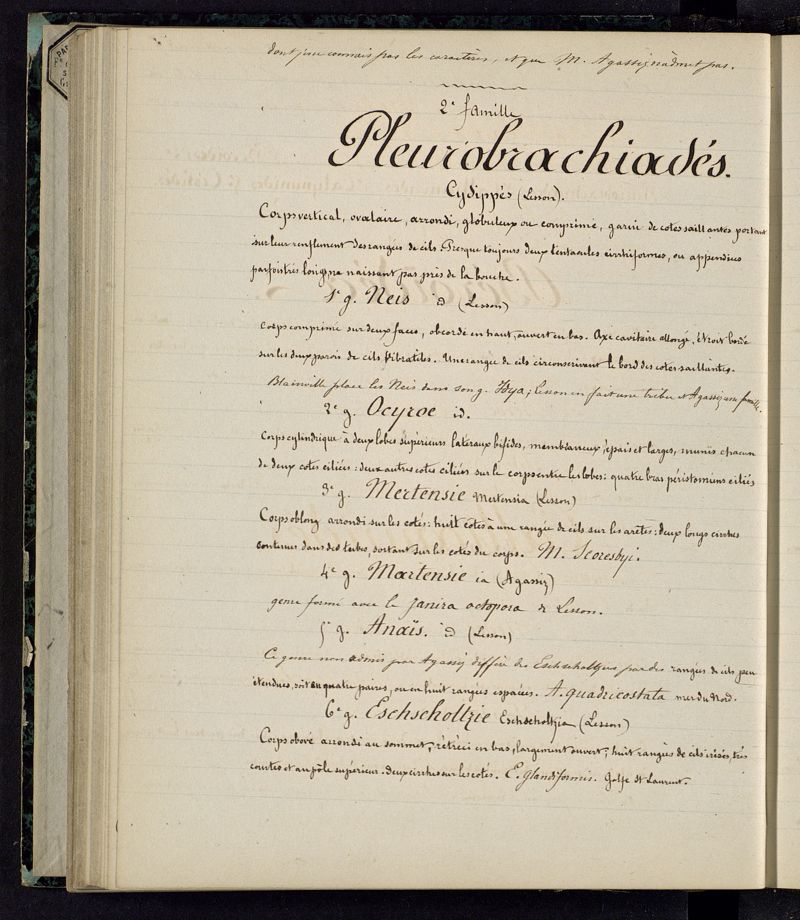 dont je ne connais pas les caractères, et que M. Agassiz n'admet pas.
2e famille
Pleurobrachiadés.
Cydippés (Lesson).
Corps vertical, ovalaire, arrondi, globuleux ou comprimé, garni de cotes saillantes portant
sur leur renflement des rangées de cils. Presque toujours deux tentacules cirrhiformes, ou appendices
parfois très longs, ne naissant pas près de la bouche.
1er g. Neis id (Lesson)
Corps comprimé sur deux faces, obcordé en haut, ouvert en bas. Axe cavitaire allongé, étroit bordé
sur les deux parois de cils vibratiles. Une rangée de cils circonscrivant le bord des cotes saillantes.
Blainville place les Neis dans son g. Idya; Lesson en fait une tribu et Agassiz une famille.
2e g. Ocyroe id.
Corps cylindrique à deux lobes supérieurs latéraux bifides, membraneux, épais et larges, munis chacun
de deux cotes ciliées: deux autres cotes ciliées sur le corps entre les lobes: quatre bras péristomiens ciliés
3e g. Mertensie Mertensia (Lesson)
Corps oblong arrondi sur les cotés: huit cotes à une rangée de cils sur les arêtes: deux longs cirrhes
contenus dans des tubes, sortant sur les cotés du corps. M. Scoresbyi.
4e g. Martensie ia (Agassiz)
genre formé avec le Janira octopora de Lesson.
5e g. Anaïs. id (Lesson)
Ce genre non admis par Agassiz diffère des Eschscholtzies par des rangées de cils peu
étendues, soit en quatre paires, ou en huit rangées espacées. A. quadricostata mer du Nord.
6e g. Eschscholtzie Eschscholtzia (Lesson)
Corps obové arrondi au sommet, rétréci en bas, largement ouvert; huit rangées de cils irisés, très
courtes et au pôle supérieur. deux cirrhes sur les cotés. E. glandiformis. Golfe St Laurent.